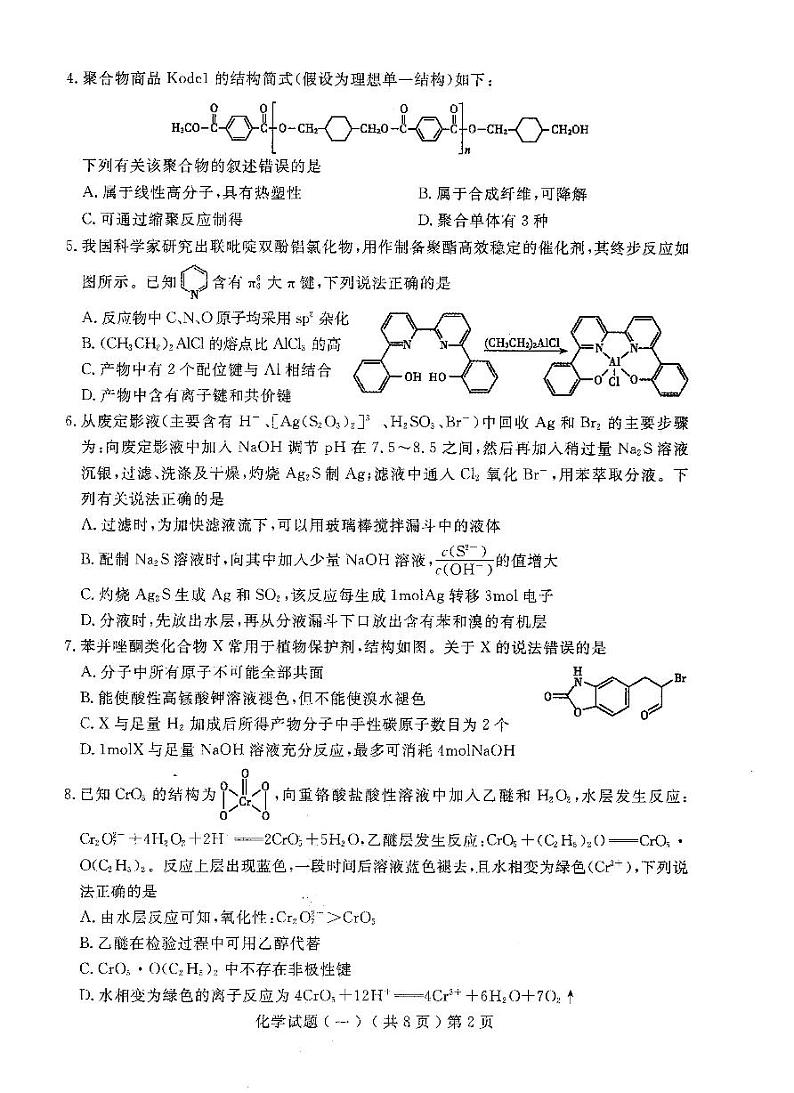 4. 聚合物商品 Kodel 的结构简式(假设为理想单一结构)如下:
H₃CO-C O C O O-CH₂ CH₂O C O C O n O-CH₂ CH₂OH
下列有关该聚合物的叙述错误的是
A. 属于线性高分子,具有热塑性 B. 属于合成纤维,可降解
C. 可通过缩聚反应制得 D. 聚合单体有 3 种
5. 我国科学家研究出联吡啶双酚铝氯化物,用作制备聚酯高效稳定的催化剂,其终步反应如
图所示。已知 N 含有 π₆⁶ 大 π 键,下列说法正确的是
A. 反应物中 C、N、O 原子均采用 sp² 杂化
B. (CH₃CH₂)₂AlCl 的熔点比 AlCl₃ 的高
C. 产物中有 2 个配位键与 Al 相结合
D. 产物中含有离子键和共价键
N N OH HO (CH₃CH₂)₂AlCl N N Al O Cl O
6. 从废定影液(主要含有 H⁻、[Ag(S₂O₃)₂]³ 、H₂SO₃、Br⁻)中回收 Ag 和 Br₂ 的主要步骤
为:向废定影液中加入 NaOH 调节 pH 在 7.5~8.5 之间,然后再加入稍过量 Na₂S 溶液
沉银,过滤、洗涤及干燥,灼烧 Ag₂S 制 Ag;滤液中通入 Cl₂ 氧化 Br⁻,用苯萃取分液。下
列有关说法正确的是
A. 过滤时,为加快滤液流下,可以用玻璃棒搅拌漏斗中的液体
B. 配制 Na₂S 溶液时,向其中加入少量 NaOH 溶液,c(S²⁻)/c(OH⁻)的值增大
C. 灼烧 Ag₂S 生成 Ag 和 SO₂,该反应每生成 1molAg 转移 3mol 电子
D. 分液时,先放出水层,再从分液漏斗下口放出含有苯和溴的有机层
7. 苯并唑酮类化合物 X 常用于植物保护剂,结构如图。关于 X 的说法错误的是
A. 分子中所有原子不可能全部共面
B. 能使酸性高锰酸钾溶液褪色,但不能使溴水褪色
C. X 与足量 H₂ 加成后所得产物分子中手性碳原子数目为 2 个
D. 1molX 与足量 NaOH 溶液充分反应,最多可消耗 4molNaOH
H N O O Br O
8. 已知 CrO₅ 的结构为 O O O Cr O O ,向重铬酸盐酸性溶液中加入乙醚和 H₂O₂,水层发生反应:
Cr₂O₇²⁻+4H₂O₂+2H ══2CrO₅+5H₂O,乙醚层发生反应:CrO₅+(C₂H₅)₂O══CrO₅·
O(C₂H₅)₂。反应上层出现蓝色,一段时间后溶液蓝色褪去,且水相变为绿色(Cr³⁺),下列说
法正确的是
A. 由水层反应可知,氧化性:Cr₂O₇²⁻>CrO₅
B. 乙醚在检验过程中可用乙醇代替
C. CrO₅·O(C₂H₅)₂ 中不存在非极性键
D. 水相变为绿色的离子反应为 4CrO₅+12H⁺══4Cr³⁺+6H₂O+7O₂↑
化学试题(一)(共 8 页)第 2 页